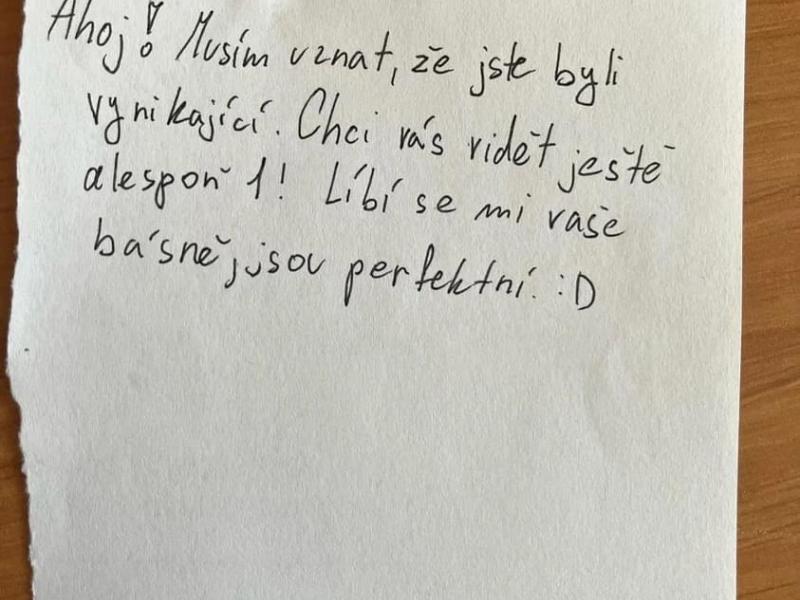 Ahoj! Musím uznat, že jste byli
vynikající. Chci vás vidět ještě
alespoň 1! Líbí se mi vaše
básně, jsou perfektní. :D